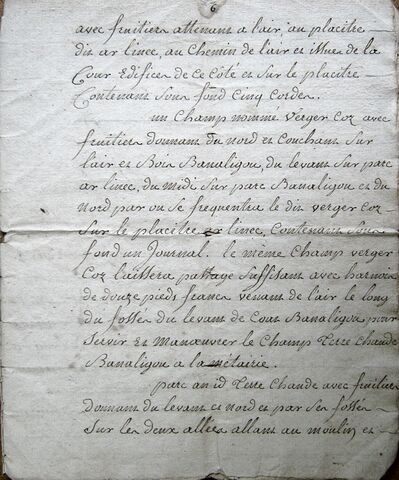 6
avec fruitiers attenant a l'air, au placitre
dit ar linec, au Chemin de l'air et issues de la
Cour Edifices de ce Côté et sur le placitre
Contenant sous fond Cinq Cordes.
un Champ nommé verger Coz avec
fruitiers donnant du nord et Couchant sur
l'air et Bois Banaligou, du levant sur parc
ar linec, du midi sur parc Banaligou et du
nord par ou se frequentra le dit verger Coz
sur le placitre ar linec, Contenant sous
fond un Journal. le même Champ verger
Coz laissera passage suffisant avec harnois
de douze pieds franca venant de l'air le long
du fossés du levant de Cour Banaligou pour
servir et manœuvrer le Champ Terre Chaude
Banaligou a la métairie.
parc an id Terre Chaude avec fruitiers
donnant du levant et nord et par ses fosses
sur les deux allées allant au moulin et